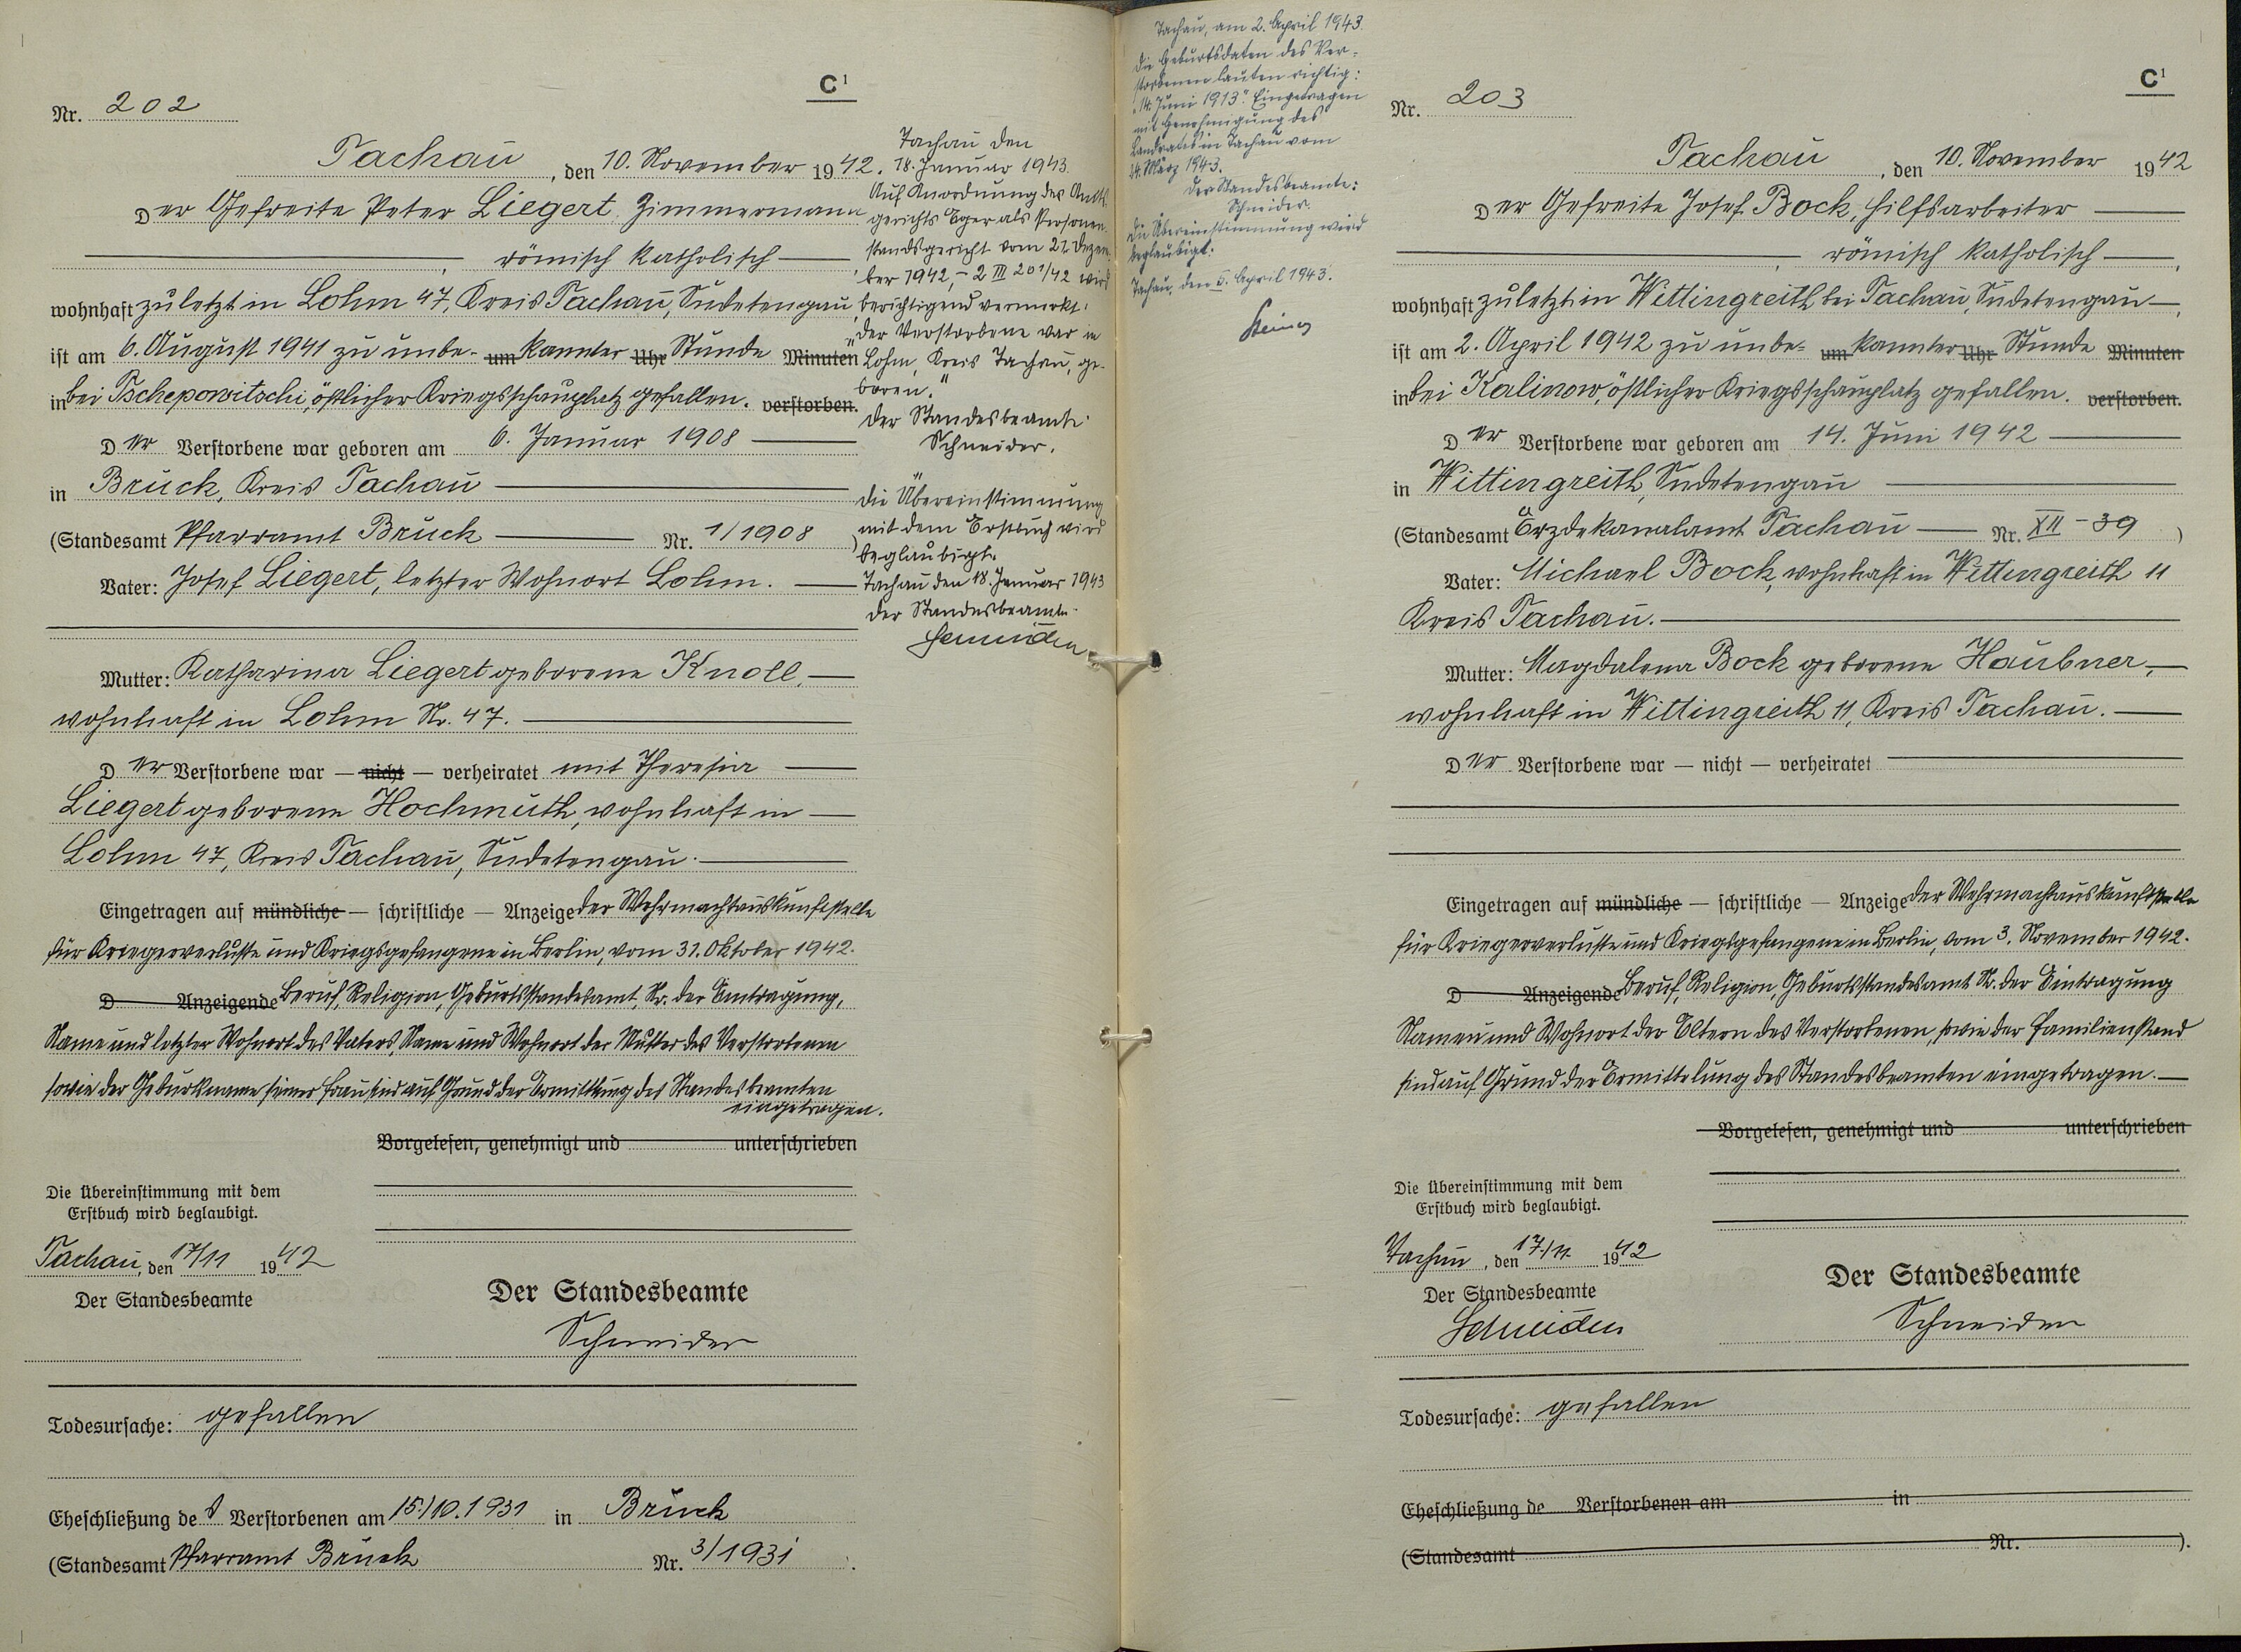 C¹
Nr. 202
Tachau, den 10. November 1942.
Der Gefreite Peter Liegert, Zimmermann
, römisch katholisch
wohnhaft zuletzt in Lohm 47, Kreis Tachau, Sudetengau,
ist am 6. August 1941 zu unbe- um kannter Uhr Stunde Minuten
in bei Tschepowitschi, östlicher Kriegsschauplatz gefallen. verstorben.
Der Verstorbene war geboren am 6. Januar 1908
in Bruck, Kreis Tachau
(Standesamt Pfarramt Bruck Nr. 1/1908 )
Vater: Josef Liegert, letzter Wohnort Lohm.
Mutter: Katharina Liegert geborene Knoll,
wohnhaft in Lohm Nr. 47.
Der Verstorbene war — nicht — verheiratet mit Theresia
Liegert geborene Hochmuth, wohnhaft in
Lohm 47, Kreis Tachau, Sudetengau.
Eingetragen auf mündliche — schriftliche — Anzeige der Wehrmachtauskunftstelle
für Kriegerverluste und Kriegsgefangene in Berlin, vom 31. Oktober 1942.
D Anzeigende Beruf, Religion, Geburtsstandesamt, Nr. der Eintragung,
Name und letzter Wohnort des Vaters, Name und Wohnort der Mutter des Verstorbenen
sowie der Geburtsname seiner Frau sind auf Grund der Ermittlung des Standesbeamten
eingetragen.
Vorgelesen, genehmigt und unterschrieben
Die Übereinstimmung mit dem
Erstbuch wird beglaubigt.
Tachau, den 17/11 1942
Der Standesbeamte
Der Standesbeamte
Schneider
Todesursache: gefallen
Eheschließung des Verstorbenen am 15./10.1931 in Bruck
(Standesamt Pfarramt Bruck Nr. 3/1931 ).
Tachau den
18. Januar 1943.
Auf Anordnung des Amts-
gerichts Eger als Personen-
standsgericht vom 21. Dezem-
ber 1942, - 2 III 201/42 wird
berichtigend vermerkt:
"Der Verstorbene war in
Lohm, Kreis Tachau, ge-
boren."
Der Standesbeamte:
Schneider.
Die Übereinstimmung
mit dem Erstbuch wird
beglaubigt.
Tachau den 18. Januar 1943
Der Standesbeamte.
Schneider
Tachau, am 2. April 1943.
Die Geburtsdaten des Ver-
storbenen lauten richtig:
"14. Juni 1913". Eingetragen
mit Genehmigung des
Landrates in Tachau vom
24. März 1943.
Der Standesbeamte:
Schneider.
Die Übereinstimmung wird
beglaubigt.
Tachau, den 5. April 1943.
C¹
Nr. 203
Tachau, den 10. November 1942
Der Gefreite Josef Bock, Hilfsarbeiter
, römisch katholisch,
wohnhaft zuletzt in Wittingreith bei Tachau, Sudetengau,
ist am 2. April 1942 zu unbe- um kannter Uhr Stunde Minuten
in bei Kalinow, östlicher Kriegsschauplatz gefallen. verstorben.
Der Verstorbene war geboren am 14. Juni 1942
in Wittingreith, Sudetengau
(Standesamt Erzdekanalamt Tachau Nr. XII - 39 )
Vater: Michael Bock, wohnhaft in Wittingreith 11
Kreis Tachau.
Mutter: Magdalena Bock geborene Haubner,
wohnhaft in Wittingreith 11, Kreis Tachau.
Der Verstorbene war — nicht — verheiratet
Eingetragen auf mündliche — schriftliche — Anzeige der Wehrmachtauskunftstelle
für Kriegerverluste und Kriegsgefangene in Berlin, vom 3. November 1942.
D Anzeigende Beruf, Religion, Geburtsstandesamt Nr. der Eintragung
Namen und Wohnort der Eltern des Verstorbenen, sowie der Familienstand
sind auf Grund der Ermittelung des Standesbeamten eingetragen.
Vorgelesen, genehmigt und unterschrieben
Die Übereinstimmung mit dem
Erstbuch wird beglaubigt.
Tachau, den 17./11. 1942
Der Standesbeamte
Schneider
Der Standesbeamte
Schneider
Todesursache: gefallen
Eheschließung de Verstorbenen am in
(Standesamt Nr. ).